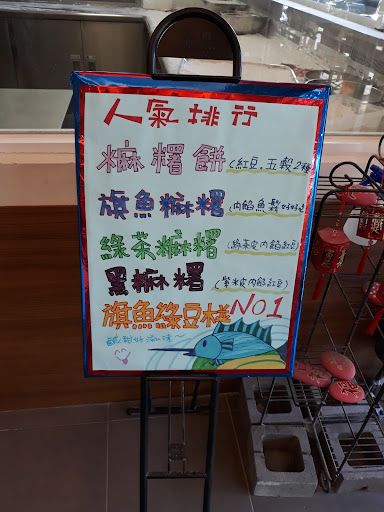 人氣排行
麻糬餅(紅豆.五穀2種)
旗魚麻糬(內餡魚鬆好好吃)
綠茶麻糬(綠茶皮內餡紅豆)
黑麻糬(紫米皮內餡紅豆)
旗魚綠豆椪NO1
鹹甜好滋味~